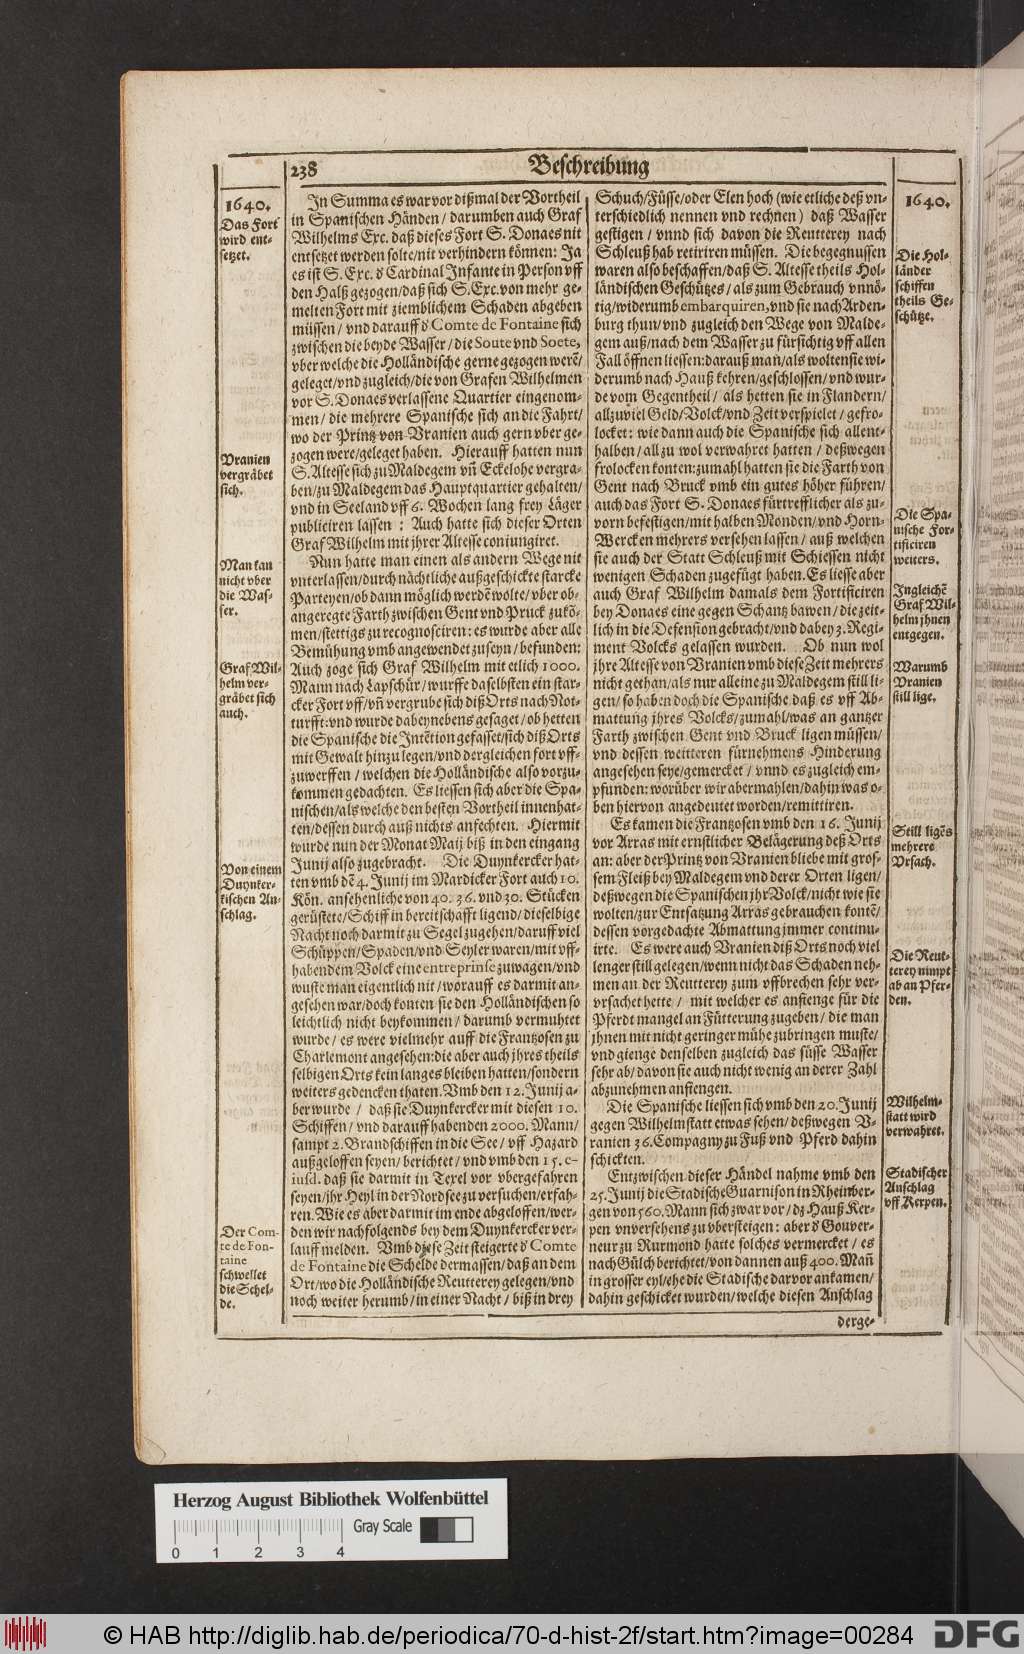 238
Beschreibung
1640.
Das Fort
wird ent-
setzet.
Vranien
vergräbet
sich.
Man kan
nicht vber
die Was-
ser.
Graf Wil-
helm ver-
gräbet sich
auch.
Von einem
Duynker-
kischen An-
schlag.
Der Com-
te de Fon-
taine
schwellet
die Schel-
de.
In Summa es war vor dißmal der Vortheil
in Spanischen Händen / darumben auch Graf
Wilhelms Exc. daß dieses Fort S. Donaes nit
entsetzt werden solte / nit verhindern können: Ja
es ist S. Exc. d Cardinal Infante in Person vff
den Halß gezogen / daß sich S. Exc. von mehr ge-
melten Fort mit ziemblichem Schaden abgeben
müssen / vnd darauff d Comte de Fontaine sich
zwischen die beyde Wasser / die Soute vnd Soete,
vber welche die Holländische gerne gezogen werē /
geleget / vnd zugleich / die von Grafen Wilhelmen
vor S. Donaes verlassene Quartier eingenom-
men / die mehrere Spanische sich an die Fahrt /
wo der Printz von Vranien auch gern vber ge-
zogen were / geleget haben. Hierauff hatten nun
S. Altesse sich zu Maldegem vñ Eckelohe vergra-
ben / zu Maldegem das Hauptquartier gehalten /
vnd in Seeland vff 6. Wochen lang frey Läger
publiciren lassen : Auch hatte sich dieser Orten
Graf Wilhelm mit jhrer Altesse conjungiret.
Nun hatte man einen als andern Wege nit
vnterlassen / durch nächtliche außgeschickte starcke
Parteyen / ob dann möglich werdē wolte / vber ob-
angeregte Farth zwischen Gent vnd Pruck zukō-
men / stettigs zu recognosciren: es wurde aber alle
Bemühung vmb angewendet zuseyn / befunden:
Auch zoge sich Graf Wilhelm mit etlich 1000.
Mann nach Lapschür / wurffe daselbsten ein star-
cker Fort vff / vñ vergrube sich diß Orts nach Not-
turfft: vnd wurde dabeynebens gesaget / ob hetten
die Spanische die Intētion gefasset / sich diß Orts
mit Gewalt hinzu legen / vnd dergleichen fort vff-
zuwerffen / welchen die Holländische also vorzu-
kommen gedachten. Es liessen sich aber die Spa-
nischen / als welche den besten Vortheil innenhat-
ten / dessen durch auß nichts anfechten. Hiermit
wurde nun der Monat Maij biß in den eingang
Junij also zugebracht. Die Duynkercker hat-
ten vmb dē 4. Junij im Mardicker Fort auch 10.
Kön. ansehenliche von 40. 36. vnd 30. Stücken
gerüstete / Schiff in bereitschafft ligend / dieselbige
Nacht noch darmit zu Segel zugehen / daruff viel
Schüppen / Spaden / vnd Seyler waren / mit vff-
habendem Volck eine entreprinse zuwagen / vnd
wuste man eigentlich nit / worauff es darmit an-
gesehen war / doch konten sie den Holländischen so
leichtlich nicht beykommen / darumb vermuhtet
wurde / es were vielmehr auff die Frantzosen zu
Charlemont angesehen: die aber auch jhres theils
selbigen Orts kein langes bleiben hatten / sondern
weiters gedencken thaten. Vmb den 12. Junij a-
ber wurde / daß sie Duynkercker mit diesen 10.
Schiffen / vnd darauff habenden 2000. Mann /
sampt 2. Brandschiffen in die See / vff Hazard
außgeloffen seyen / berichtet / vnd vmb den 15. e-
iusd. daß sie darmit in Texel vor vbergefahren
seyen / jhr Heyl in der Nordsee zu versuchen / erfah-
ren. Wie es aber darmit im ende abgeloffen / wer-
den wir nachfolgends bey dem Duynkercker ver-
lauff melden. Vmb diese Zeit steigerte d Comte
de Fontaine die Schelde dermassen / daß an dem
Ort / wo die Holländische Reutterey gelegen / vnd
noch weiter herumb / in einer Nacht / biß in drey
Schuch / Füsse / oder Elen hoch (wie etliche deß vn-
terschiedlich nennen vnd rechnen) daß Wasser
gestigen / vnnd sich davon die Reutterey nach
Schleuß hab retiriren müssen. Die begegnussen
waren also beschaffen / daß S. Altesse theils Hol-
ländischen Geschützes / als zum Gebrauch vnnö-
tig / widerumb embarquiren, vnd sie nach Arden-
burg thun / vnd zugleich den Wege von Malde-
gem auß / nach dem Wasser zu fürsichtig vff allen
Fall öffnen liessen: darauß man / als wolten sie wi-
derumb nach Hauß kehren / geschlossen / vnd wur-
de vom Gegentheil / als hetten sie in Flandern /
allzuviel Geld / Volck / vnd Zeit verspielet / gefro-
locket: wie dann auch die Spanische sich allent-
halben / all zu wol verwahret hatten / deßwegen
frolocken konten: zumahl hatten sie die Farth von
Gent nach Bruck vmb ein gutes höher führen /
auch das Fort S. Donaes fürtrefflicher als zu-
vorn befestigen / mit halben Monden / vnd Horn-
Wercken mehrers versehen lassen / auß welchen
sie auch der Statt Schleuß mit Schiessen nicht
wenigen Schaden zugefügt haben. Es liesse aber
auch Graf Wilhelm damals dem Fortificiren
bey Donaes eine gegen Schantz bawen / die zeit-
lich in die Defension gebracht / vnd dabey 3. Regi-
ment Volcks gelassen wurden. Ob nun wol
jhre Altesse von Vranien vmb diese Zeit mehrers
nicht gethan / als nur alleine zu Maldegem still li-
gen / so haben doch die Spanische daß es vff Ab-
mattung jhres Volcks / zumahl / was an gantzer
Farth zwischen Gent vnd Bruck ligen müssen /
vnd dessen weitteren fürnehmens Hinderung
angesehen seye / gemercket / vnnd es zugleich em-
pfunden: worüber wir abermahlen / dahin was o-
ben hiervon angedeutet worden / remittiren.
Es kamen die Frantzosen vmb den 16. Junij
vor Arras mit ernstlicher Belägerung deß Orts
an: aber der Printz von Vranien bliebe mit gros-
sem Fleiß bey Maldegem vnd derer Orten ligen /
deßwegen die Spanischen jhr Volck / nicht wie sie
wolten / zur Entsatzung Arras gebrauchen kontē /
dessen vorgedachte Abmattung jmmer continu-
irte. Es were auch Vranien diß Orts noch viel
lenger still gelegen / wenn nicht das Schaden neh-
men an der Reutterey zum vffbrechen sehr ver-
vrsachet hette / mit welcher es anfienge für die
Pferdt mangel an Fütterung zugeben / die man
jhnen mit nicht geringer mühe zubringen muste /
vnd gienge denselben zugleich das süsse Wasser
sehr ab / davon sie auch nicht wenig an derer Zahl
abzunehmen anfiengen.
Die Spanische liessen sich vmb den 20. Junij
gegen Wilhelmstatt etwas sehen / deßwegen V-
ranien 36. Compagny zu Fuß vnd Pferd dahin
schickten.
Entzwischen dieser Händel nahme vmb den
25. Junij die Stadische Guarnison in Rheinber-
gen von 560. Mann sich zwar vor / dz Hauß Ker-
pen vnversehens zu vbersteigen: aber d Gouver-
neur zu Rurmond hatte solches vermercket / es
nach Gülch berichtet / von dannen auß 400. Mañ
in grosser eyl / ehe die Stadische darvor ankamen /
dahin geschicket wurden / welche diesen Anschlag
derge-
1640.
Die Hol-
länder
schiffen
theils Ge-
schütze.
Die Spa-
nische For-
tificiren
weiters.
Ingleichē
Graf Wil-
helm jhnen
entgegen.
Warumb
Vranien
still lige.
Still ligēs
mehrere
Vrsach.
Die Reut-
terey nimpt
ab an Pfer-
den.
Wilhelm-
statt wird
verwahret.
Stadischer
Anschlag
vff Kerpen.
Herzog August Bibliothek Wolfenbüttel
Gray Scale
0 1 2 3 4
© HAB http://diglib.hab.de/periodica/70-d-hist-2f/start.htm?image=00284
DFG